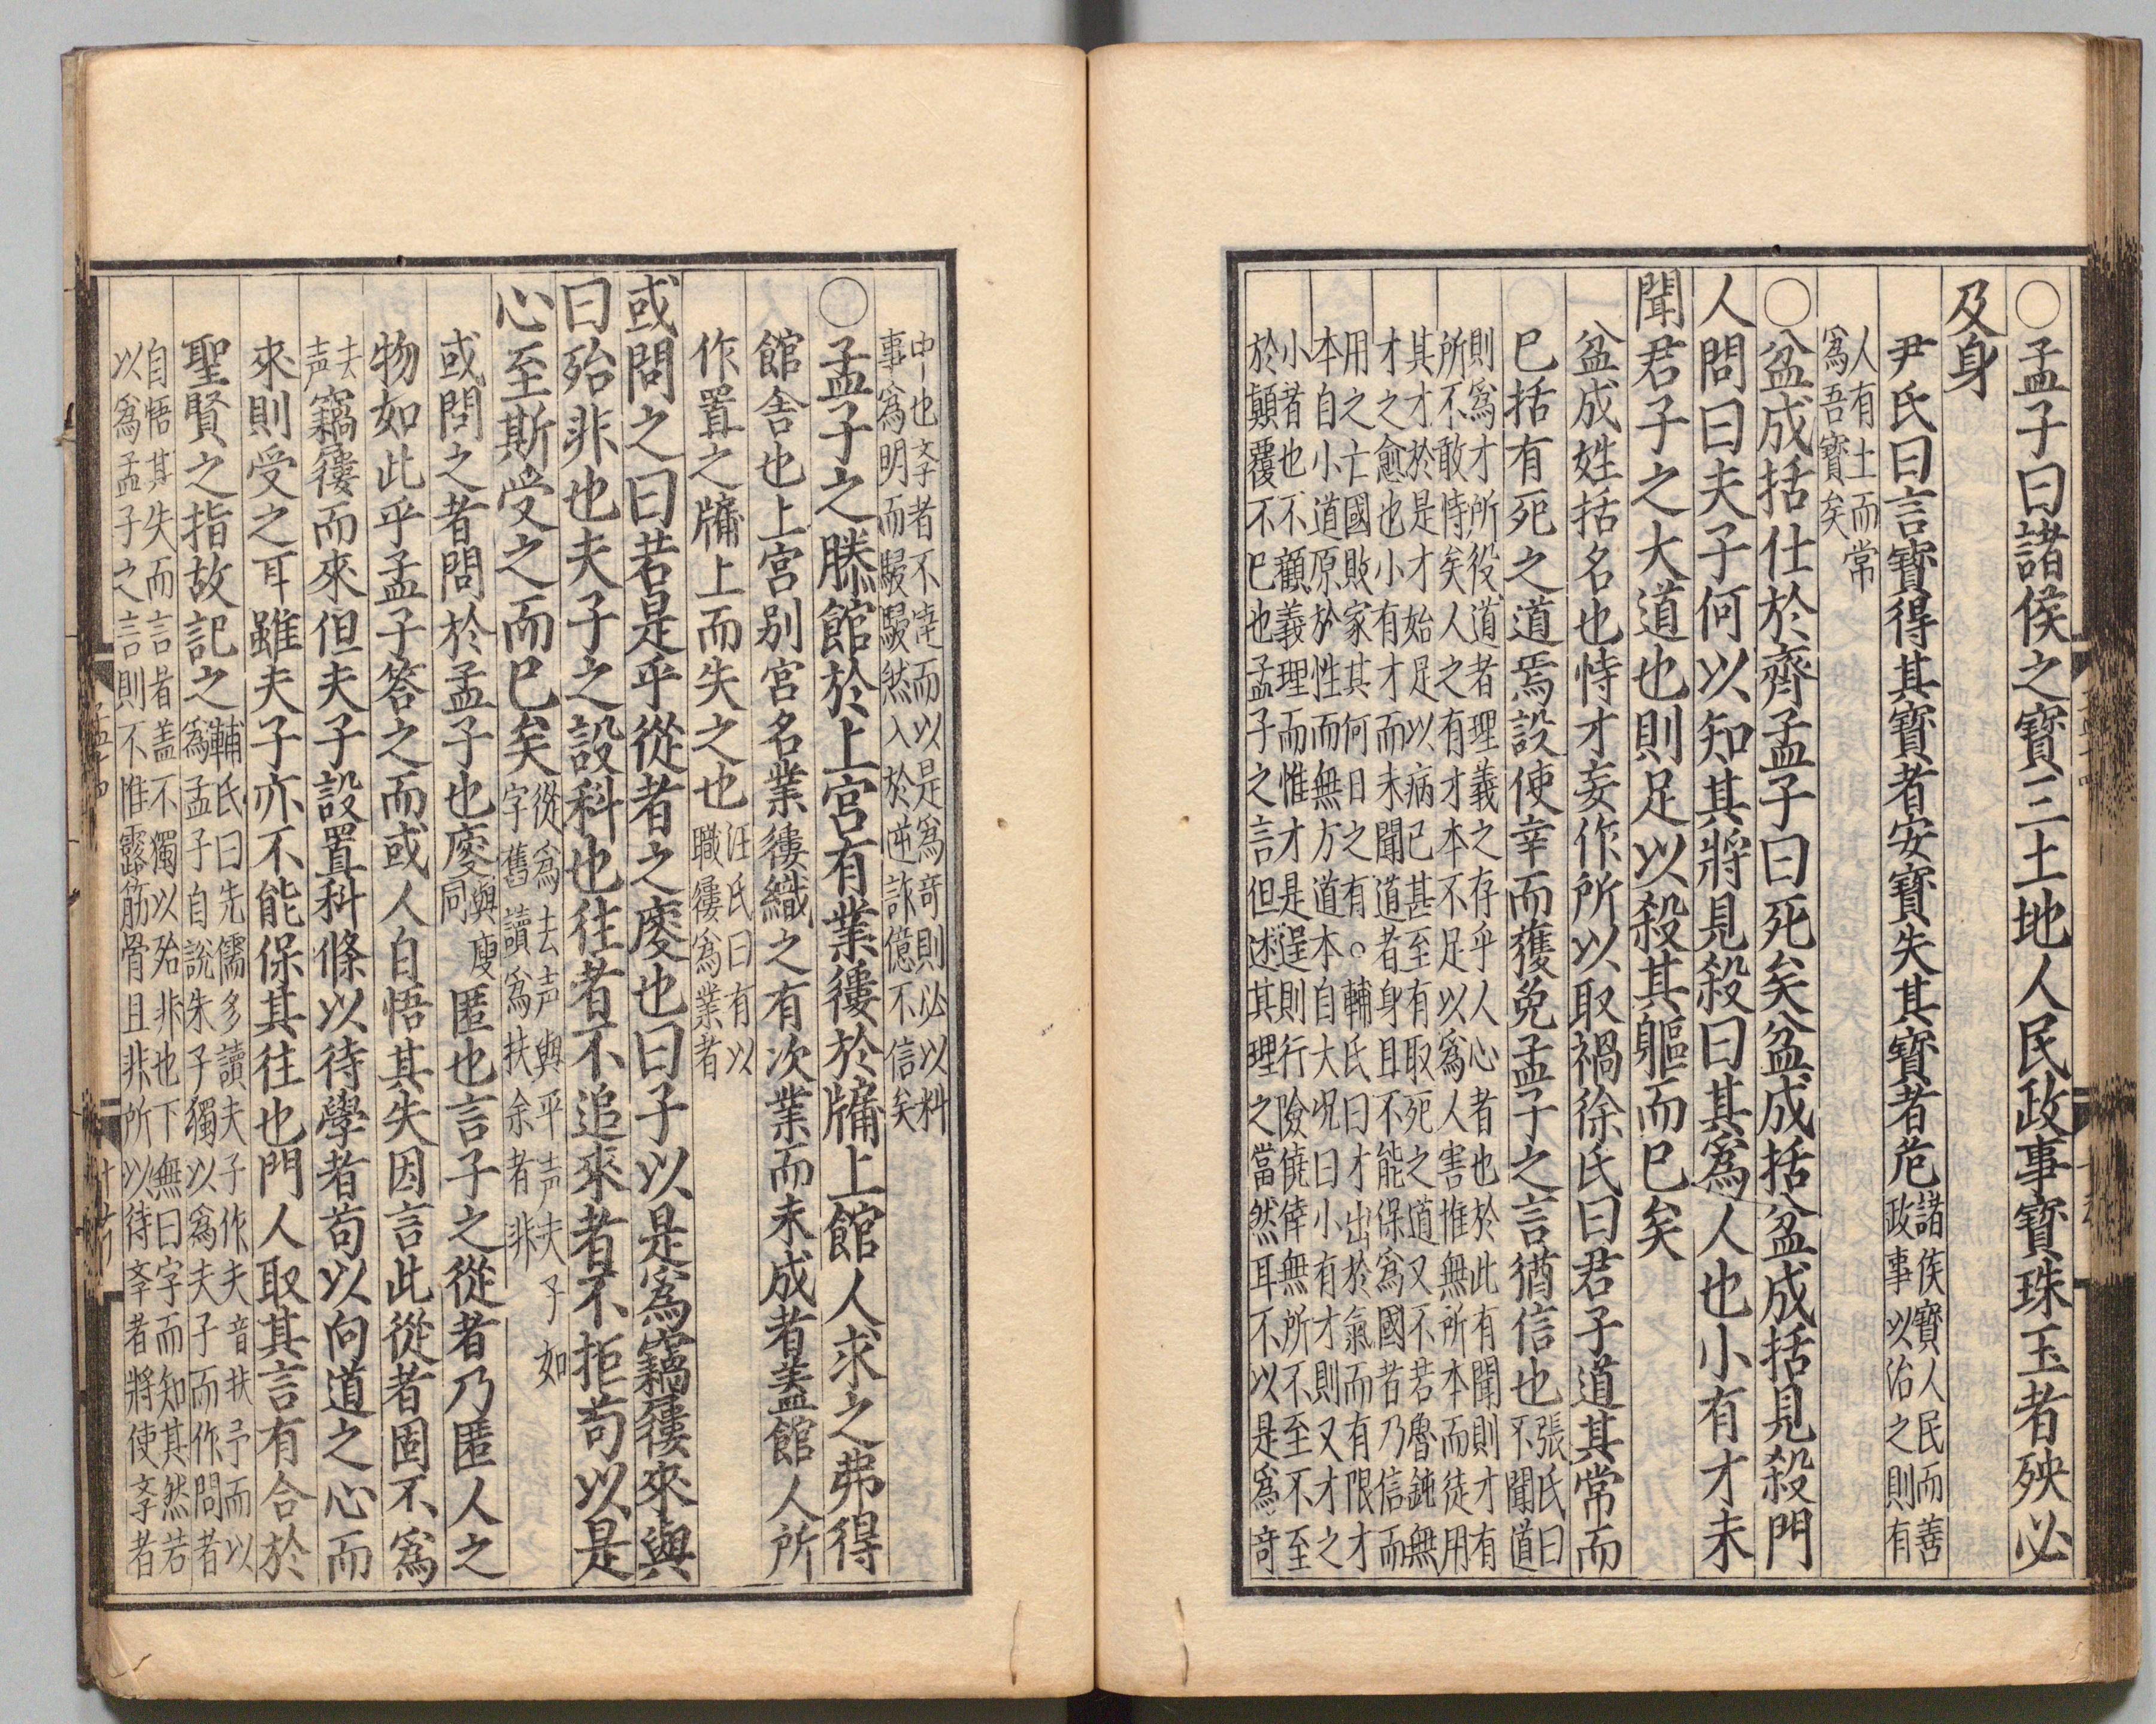 ○孟子曰諸侯之寶三土地人民政事寶珠玉者殃必
及身
尹氏曰言寶得其寶者安寶失其寶者危
諸侯寶人民而善
政事以治之則有
人有土而常
爲吾寶矣
○盆成括仕於齊孟子曰死矣盆成括盆成括見殺門
人問曰夫子何以知其將見殺曰其爲人也小有才未
聞君子之大道也則足以殺其軀而已矣
盆成姓括名也恃才妄作所以取禍徐氏曰君子道其常而
已括有死之道焉設使幸而獲免孟子之言猶信也
張氏曰
不聞道
則爲才所役道者理義之存乎人心者也於此有聞則才有
所不敢恃矣人之有才本不足以爲人害惟無所本而徒用
其才於是才始足以病已甚至有取死之道又不若魯鈍無
才之愈也小有才而未聞道者身且不能保爲國者乃信而
用之亡國敗家其何日之有○輔氏曰才出於氣而有限才
本自小道原於性而無方道本自大况曰小有才則又才之
小者也不顧義理而惟才是逞則行險僥倖無所不至不至
於顛覆不已也孟子之言但述其理之當然耳不以是爲竒
中也斈者不達而以是爲竒則必以料
事爲明而駸駸然入於逆詐億不信矣
○孟子之滕館於上宮有業屨於牖上館人求之弗得
館舍也上宮别宮名業屨織之有次業而未成者盖館人所
作置之牖上而失之也
汪氏曰有以
職屨爲業者
或問之曰若是乎從者之廋也曰子以是爲竊屨來與
曰殆非也夫子之設科也往者不追來者不拒苟以是
心至斯受之而已矣
從爲去声與平声夫子如
字舊讀爲扶余者非
或問之者問於孟子也廋
與廋
同
匿也言子之從者乃匿人之
物如此乎孟子答之而或人自悟其失因言此從者固不爲
去
声
竊屨而來但夫子設置科條以待學者苟以向道之心而
來則受之耳雖夫子亦不能保其往也門人取其言有合於
聖賢之指故記之
輔氏曰先儒多讀夫子作夫音扶予而以
爲孟子自說朱子獨以爲夫子而作問者
自悟其失而言者盖不獨以殆非也下無曰字而知其然若
以爲孟子之言則不惟露筋骨且非所以待斈者將使斈者